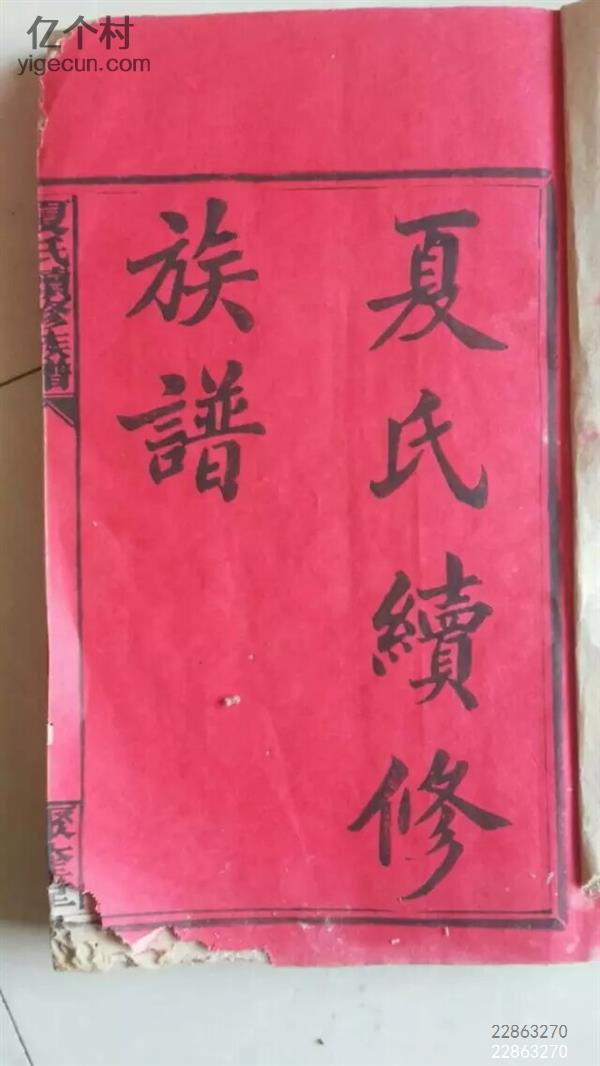 亿个村
yigecun.com
夏氏續修
族譜
夏氏續修族譜
22863270
22863270